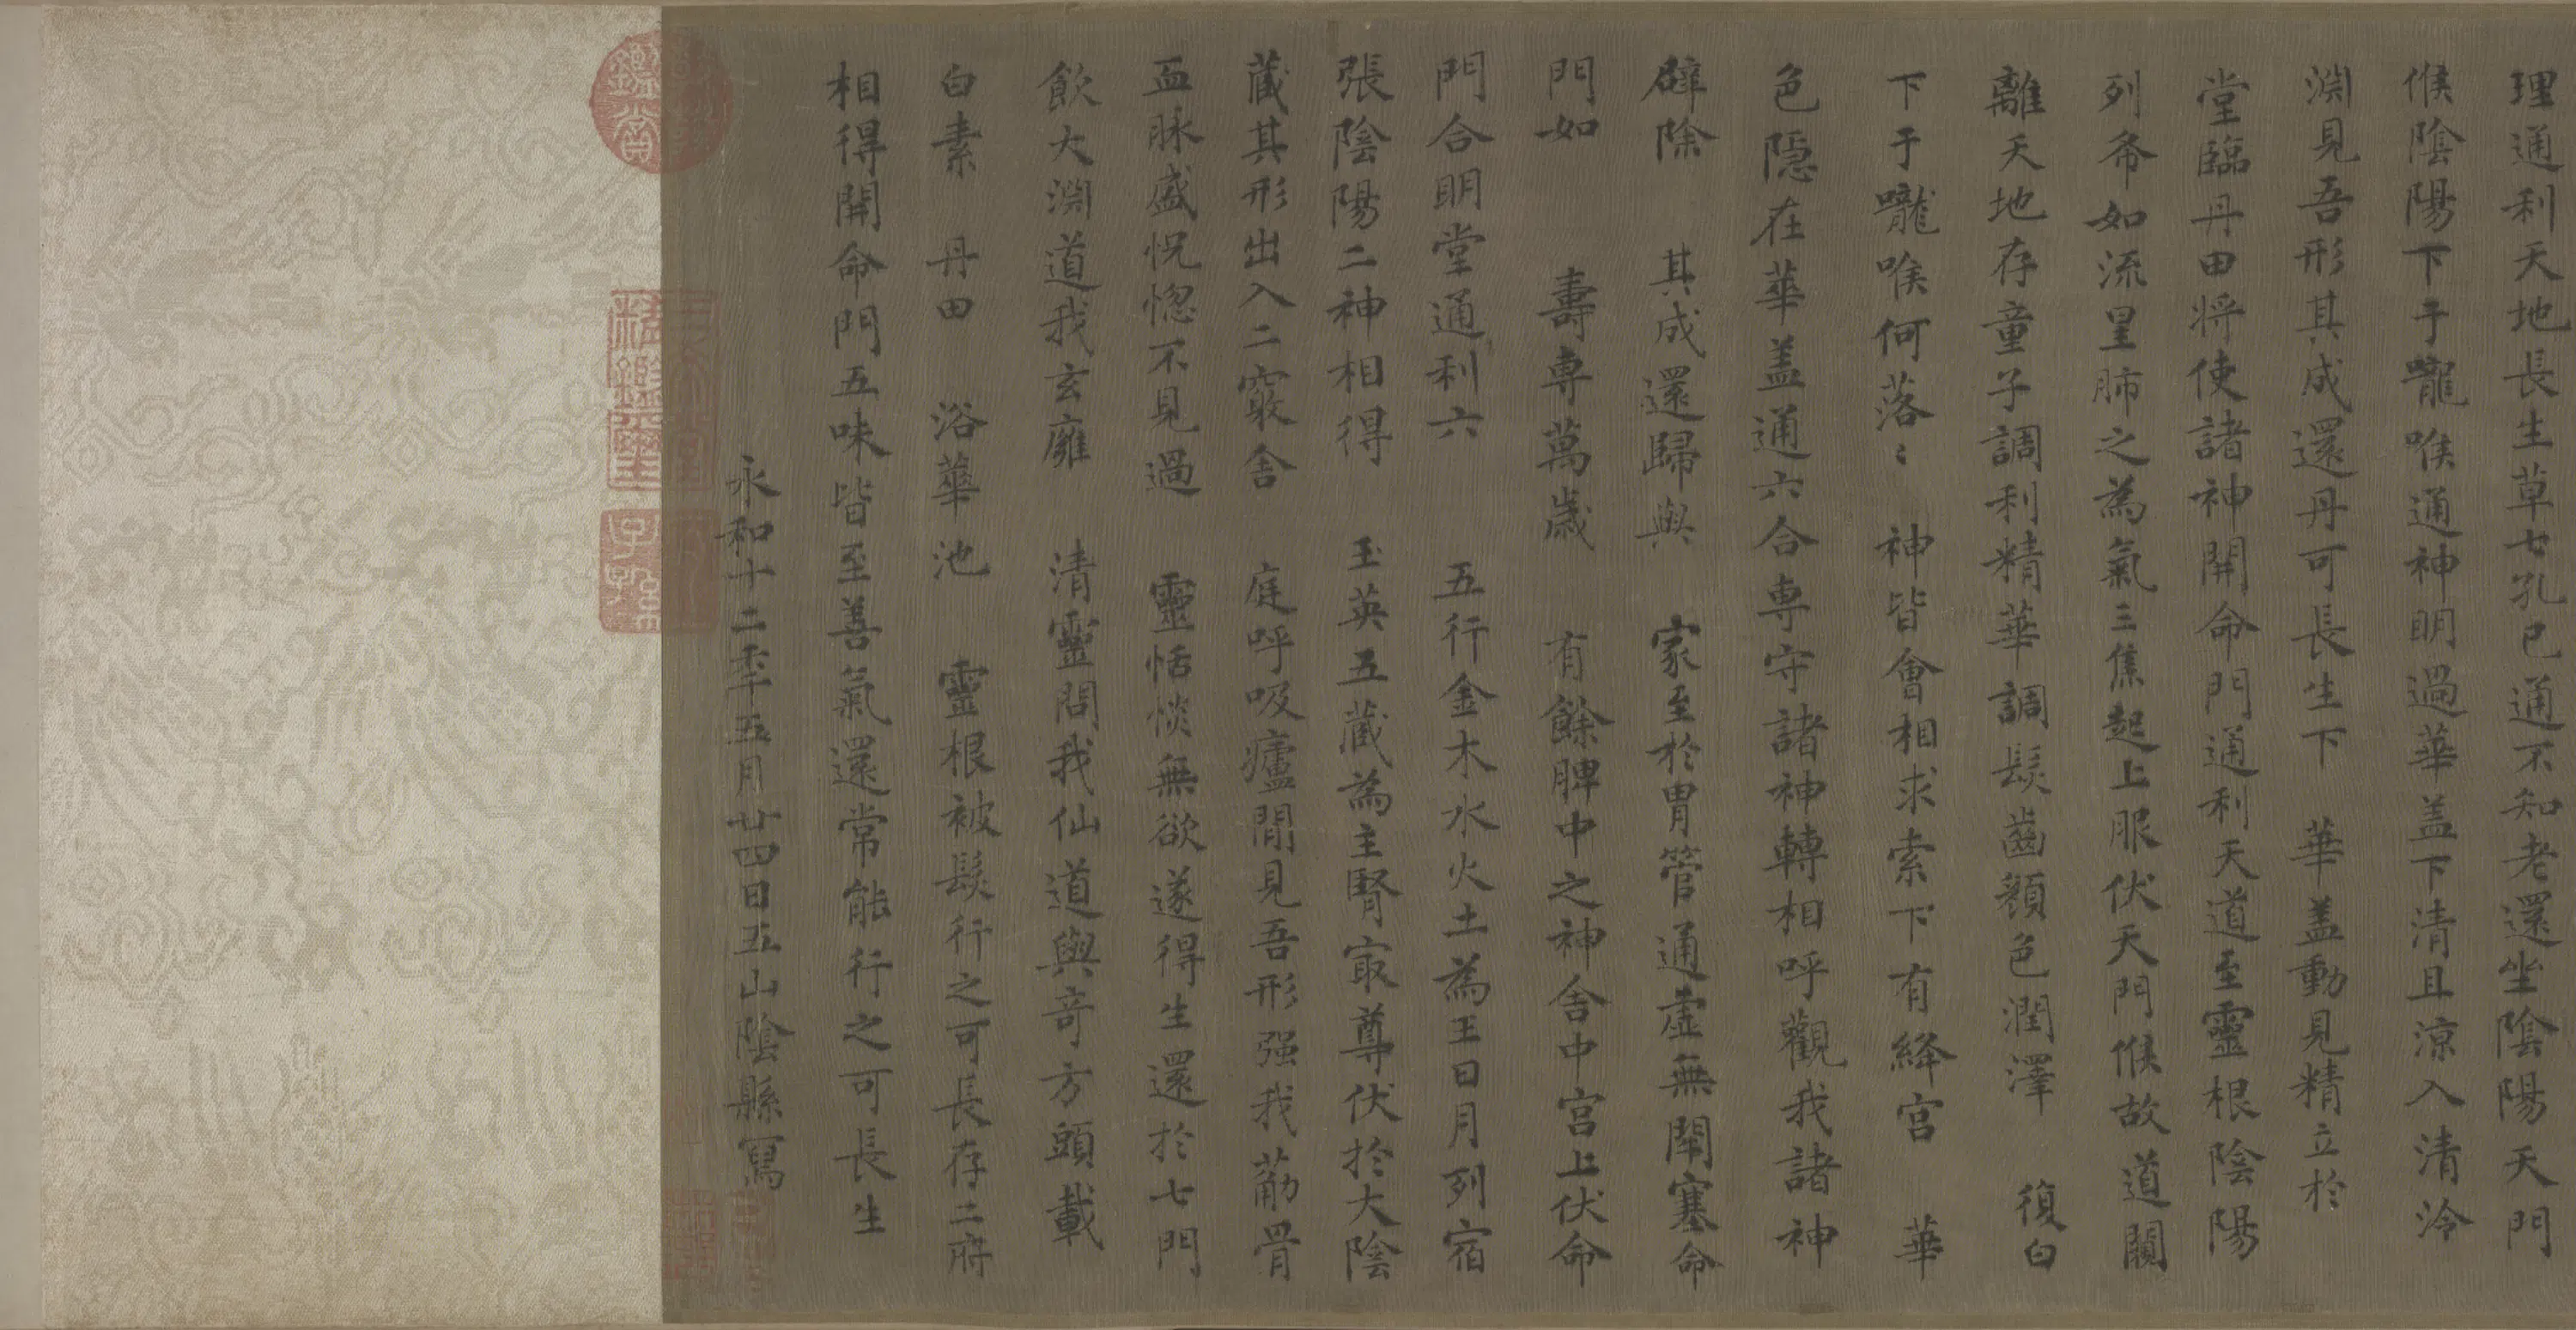 理通利天地長生草七孔已通不知老還坐陰陽天門
候陰陽下于嚨喉通神明過華盖下清且涼入清泠
淵見吾形其成還丹可長生下 華盖動見精立於
堂臨丹田將使諸神開命門通利天道至靈根陰陽
列布如流星肺之為氣三焦起上服伏天門候故道闚
離天地存童子調利精華調髮齒顏色潤澤 復白
下于嚨喉何落〻 神皆會相求索下有絳宮 華
色隠在華盖通六合專守諸神轉相呼觀我諸神
辟除 其成還歸與 家至於胃管通虛無閉塞命
門如 壽專萬歲 有餘脾中之神舍中宮上伏命
門合明堂通利六 五行金木水火土為王日月列宿
張陰陽二神相得 玉英五藏為主腎寂尊伏於大陰
藏其形出入二竅舍 庭呼吸廬間見吾形强我葪骨
血脉盛怳惚不見過 靈恬惔無欲遂得生還於七門
飲大淵道我玄廱 清靈問我仙道與竒方頭載
白素 丹田 浴華池 靈根被髮行之可長存二府
相得開命門五味皆至善氣還常能行之可長生
永和十二年五月廿四日五山陰縣寫